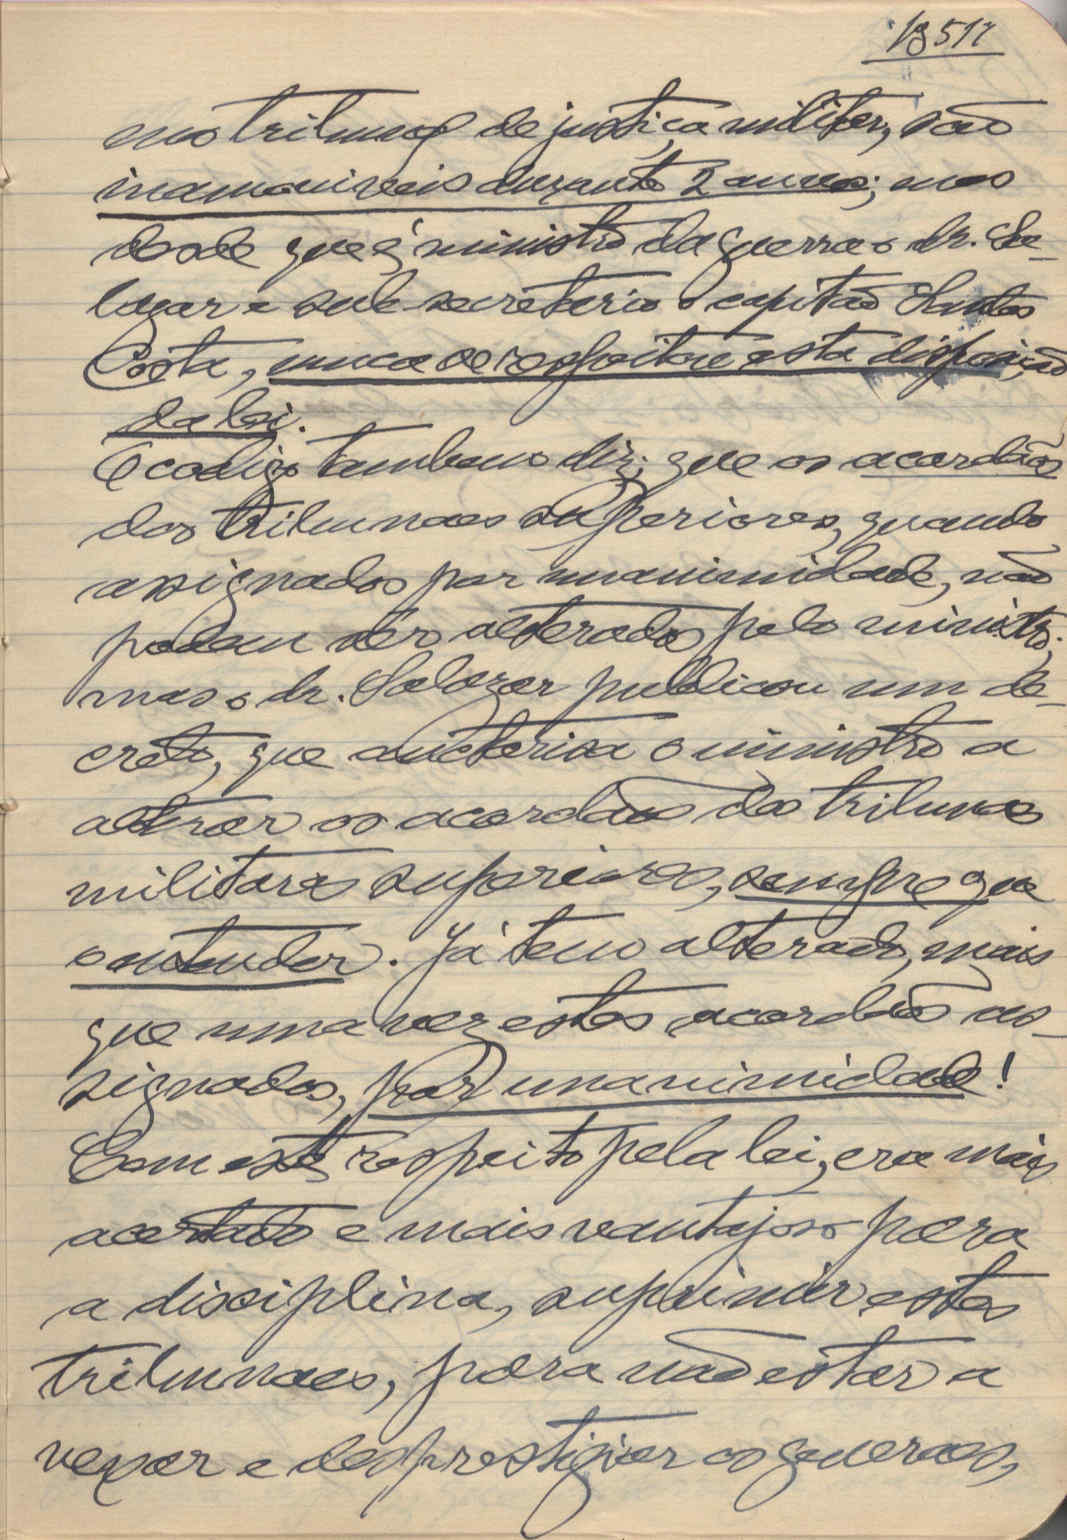 13517
nos tribunaes de justiça militar, são
inamoviveis durante 2 annos; mas
desde que é ministro da guerra o dr. Sa-
lazar e sub secretario o capitão Santos
Costa, nunca se respeitou esta disposição
da lei.
O codigo tambem diz; que os acordãos
dos tribunaes superiores, quando
assignados por unanimidade, não
podem ser alterados pelo ministro;
mas o dr. Salazar publicou um de-
creto, que auctorisa o ministro a
alterar os acordãos dos tribunaes
militares superiores, sempre que
o entender. Já tem alterado, mais
que uma vez estes acordãos as-
signados, por unanimidade!
Com este respeito pela lei, era mais
acertado e mais vantajoso para
a disciplina, suprimir estes
tribunaes, para não estar a
vexar e desprestigiar os generaes,